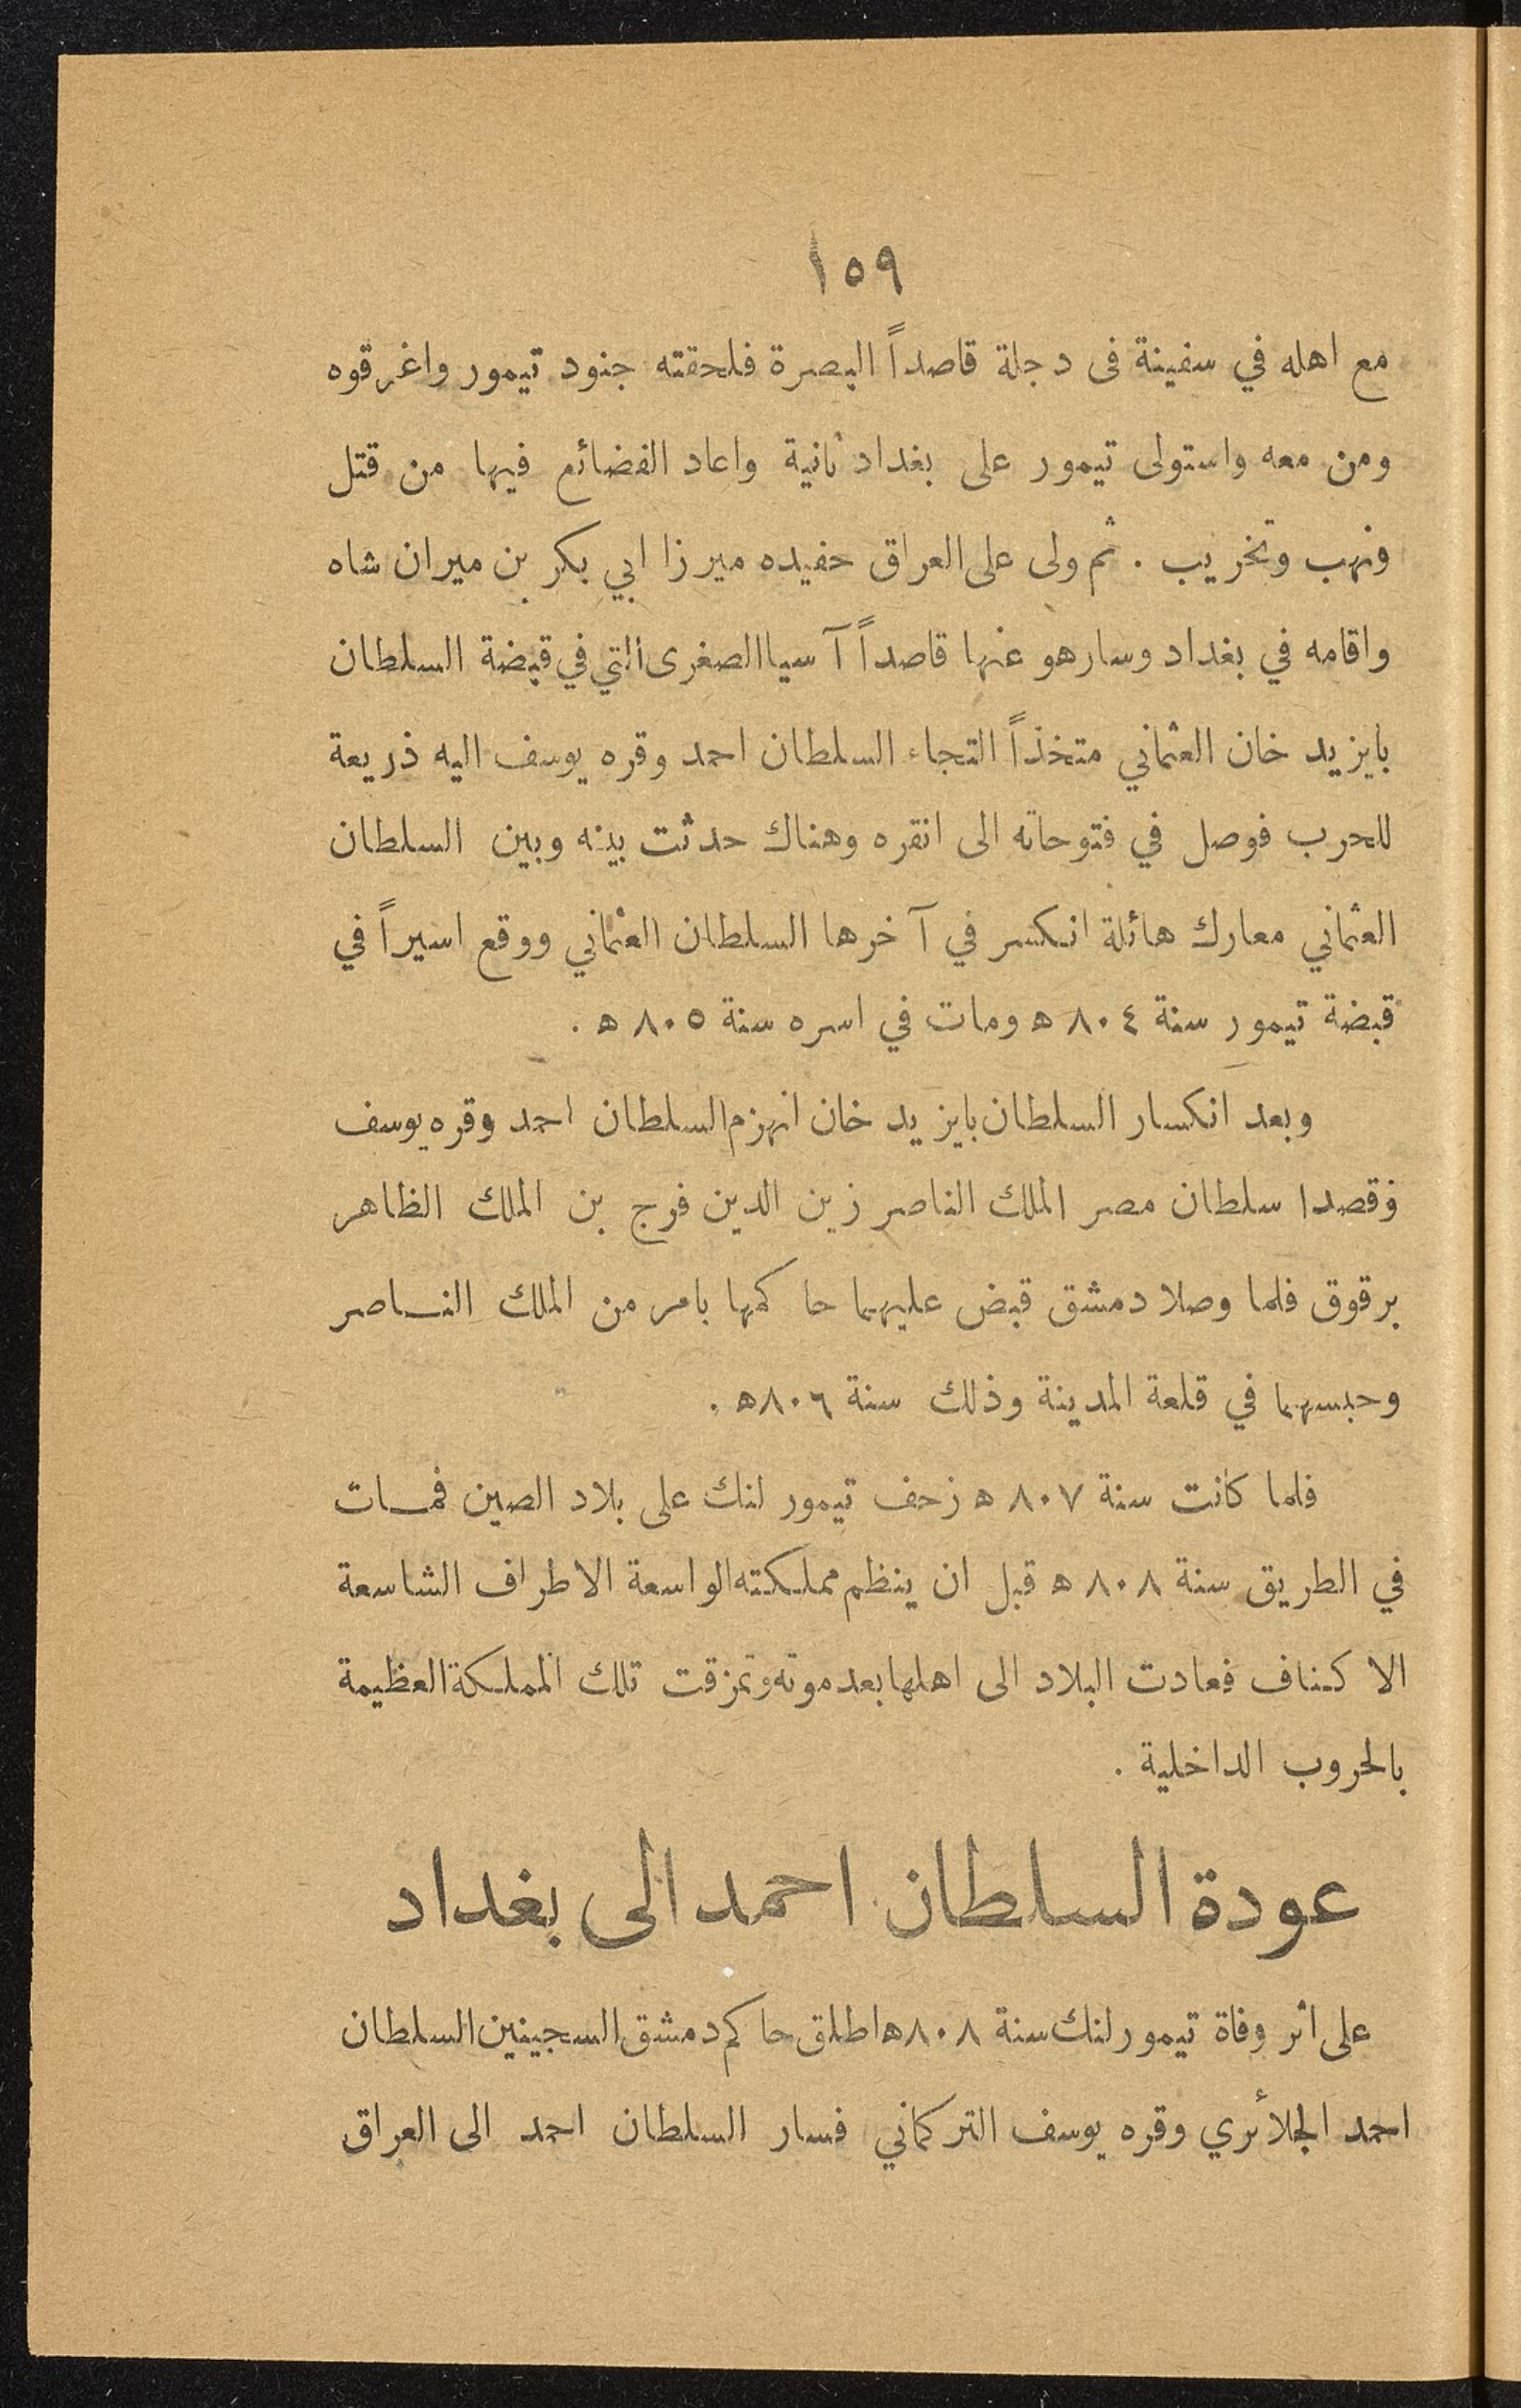 ١٥٩
مع اهله في سفينة فى دجلة قاصداً البصرة فلحقته جنود تيمور واغرقوه
ومن معه واستولى تيمور على بغداد ثانية واعاد الفضائع فيها من قتل
ونهب وتخريب . ثم ولى على العراق حفيده ميرزا ابي بكر بن ميران شاه
واقامه في بغداد وسار هو عنها قاصداً آسيا الصغرى التي في قبضة السلطان
بايزيد خان العثماني متخذاً التجاء السلطان احمد وقره يوسف اليه ذريعة
للحرب فوصل في فتوحاته الى انقره وهناك حدثت بينه وبين السلطان
العثماني معارك هائلة انكسر في آخرها السلطان العثماني ووقع اسيراً في
قبضة تيمور سنة ٨٠٤ ه ومات في اسره سنة ٨٠٥ ه .
وبعد انكسار السلطان بايزيد خان انهزم السلطان احمد وقره يوسف
فقصدا سلطان مصر الملك الناصر زين الدين فرج بن الملك الظاهر
برقوق فلما وصلا دمشق قبض عليهما حاكمها بامر من الملك الناصر
وحبسهما في قلعة المدينة وذلك سنة ٨٠٦ ه .
فلما كانت سنة ٨٠٧ ه زحف تيمور لنك على بلاد الصين فمات
في الطريق سنة ٨٠٨ ه قبل ان ينظم مملكته الواسعة الاطراف الشاسعة
الاكناف فعادت البلاد الى اهلها بعد موته وتمزقت تلك المملكة العظيمة
بالحروب الداخلية .
عودة السلطان احمد الى بغداد
على اثر وفاة تيمور لنك سنة ٨٠٨ ه اطلق حاكم دمشق السجينين السلطان
احمد الجلائري وقره يوسف التركماني فسار السلطان احمد الى العراق